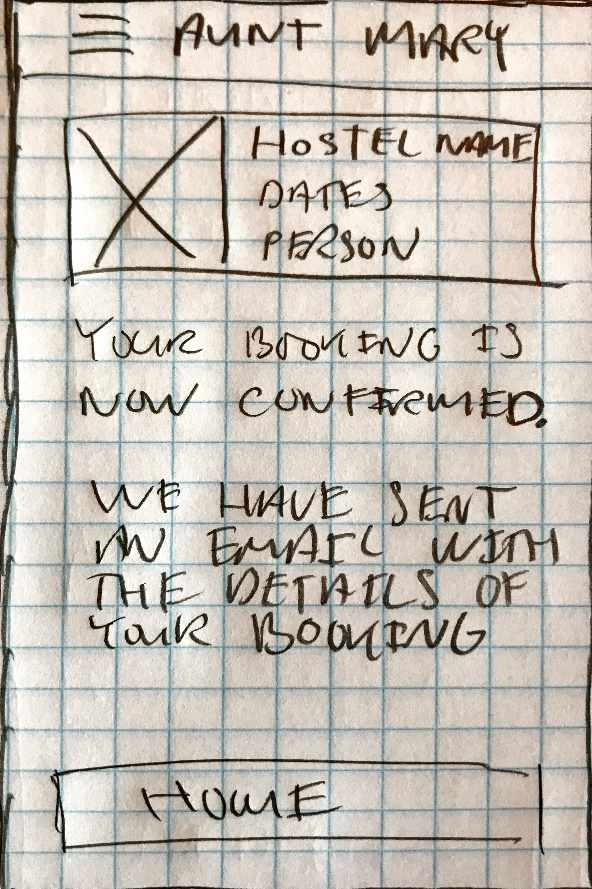 AUNT MARY
HOSTEL NAME
DATES
PERSON
YOUR BOOKING IS
NOW CONFIRMED.
WE HAVE SENT
AN EMAIL WITH
THE DETAILS OF
YOUR BOOKING
HOME